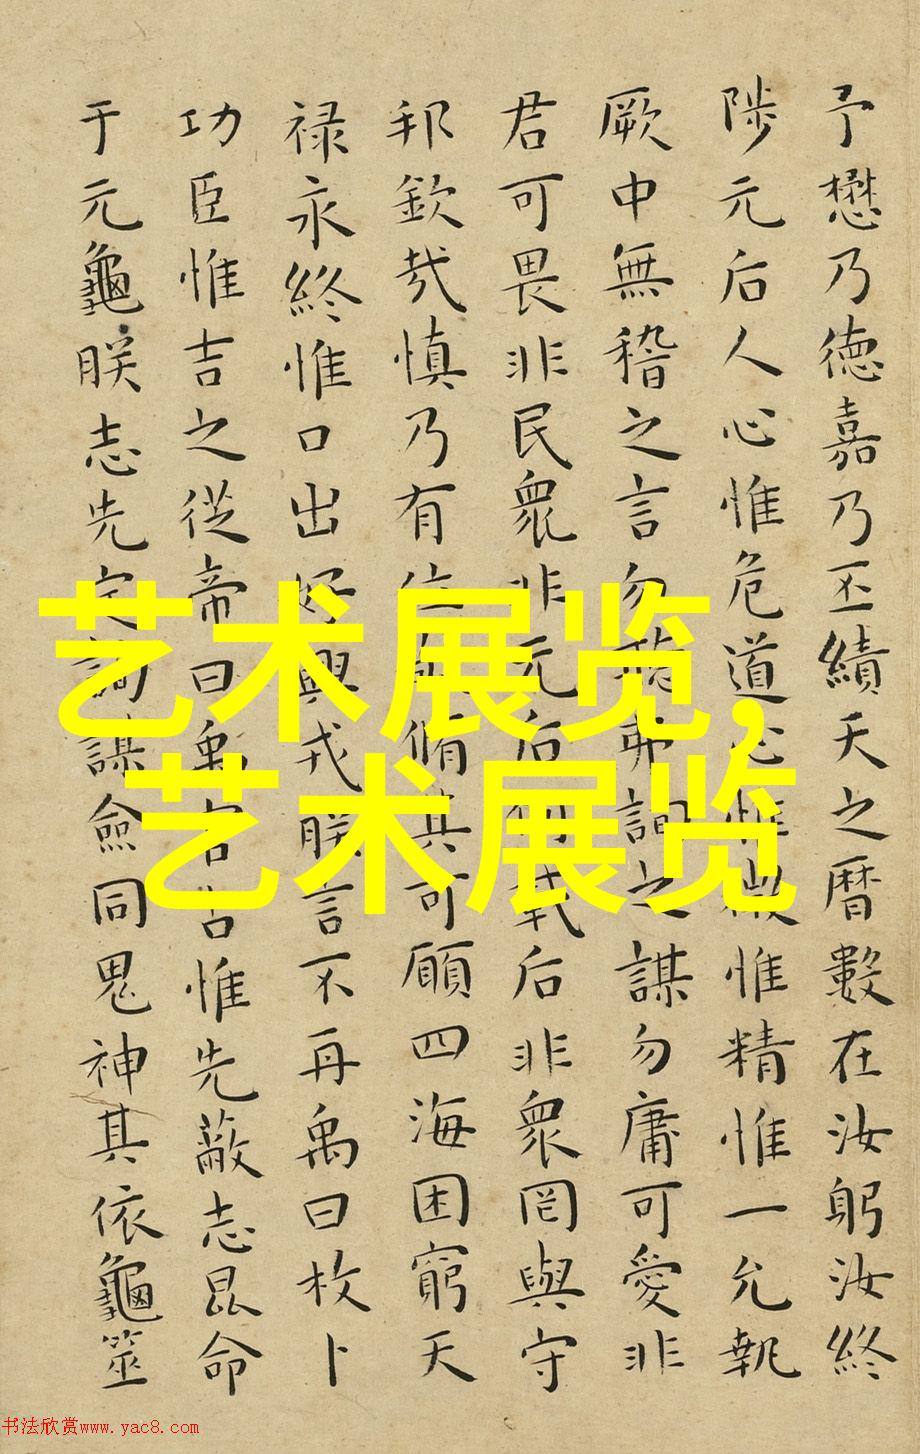 予懋乃德嘉乃丕績天之曆數在汝躬汝終
陟元后人心惟危道心惟微惟精惟一允執
厥中無稽之言勿聽弗詢之謀勿庸可愛非
君可畏非民衆非元后何戴后非衆罔與守
邦欽哉慎乃有位敬脩其可願四海困窮天
禄永終惟口出好興戎朕言不再禹曰枚卜
功臣惟吉之從帝曰禹官占惟先蔽志昆命
于元龜朕志先定詢謀僉同鬼神其依龜筮
艺术展览,
艺术展览
书法欣赏www.yac8.com